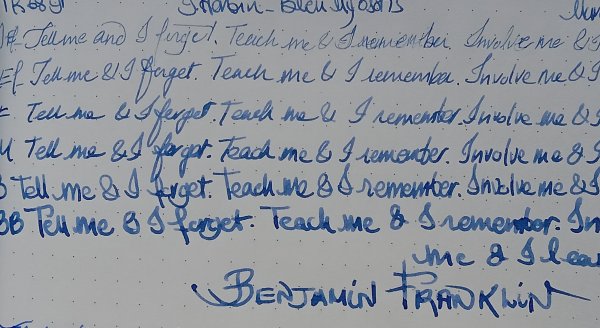 Tell me and I forget. Teach me & I remember. Involve me & I
EF Tell me & I forget. Teach me & I remember. Involve me & I
F Tell me & I forget. Teach me & I remember. Involve me & I
M Tell me & I forget. Teach me & I remember. Involve me & I
B Tell me & I forget. Teach me & I remember. Involve me & I
BB Tell me & I forget. Teach me & I remember. In
me & I lear
BENJAMIN FRANKLIN